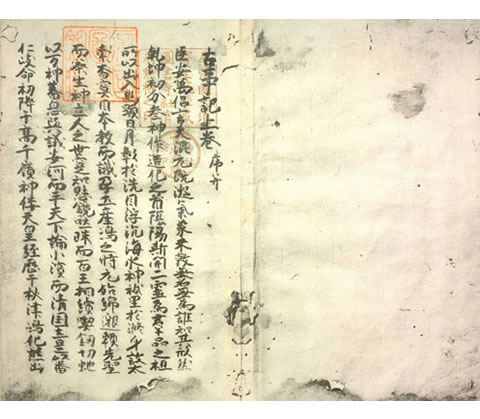 古事記上卷 序并
臣安萬侶言夫混元既凝氣象未效無名無為誰知其形然
乾坤初分參神作造化之首陰陽斯開二靈為群品之祖
所以出入幽顯日月彰於洗目浮沉海水神祇呈於滌身故太
素杳冥因本教而識孕土產嶋之時元始綿邈賴先聖
而察生神立人之世寔知懸鏡吐珠而百王相續喫釼切蛇
以万神蕃息與議安河而平天下論小濱而清国土是以番
仁岐命初降于高千嶺神倭天皇經歷于秋津嶋化熊出